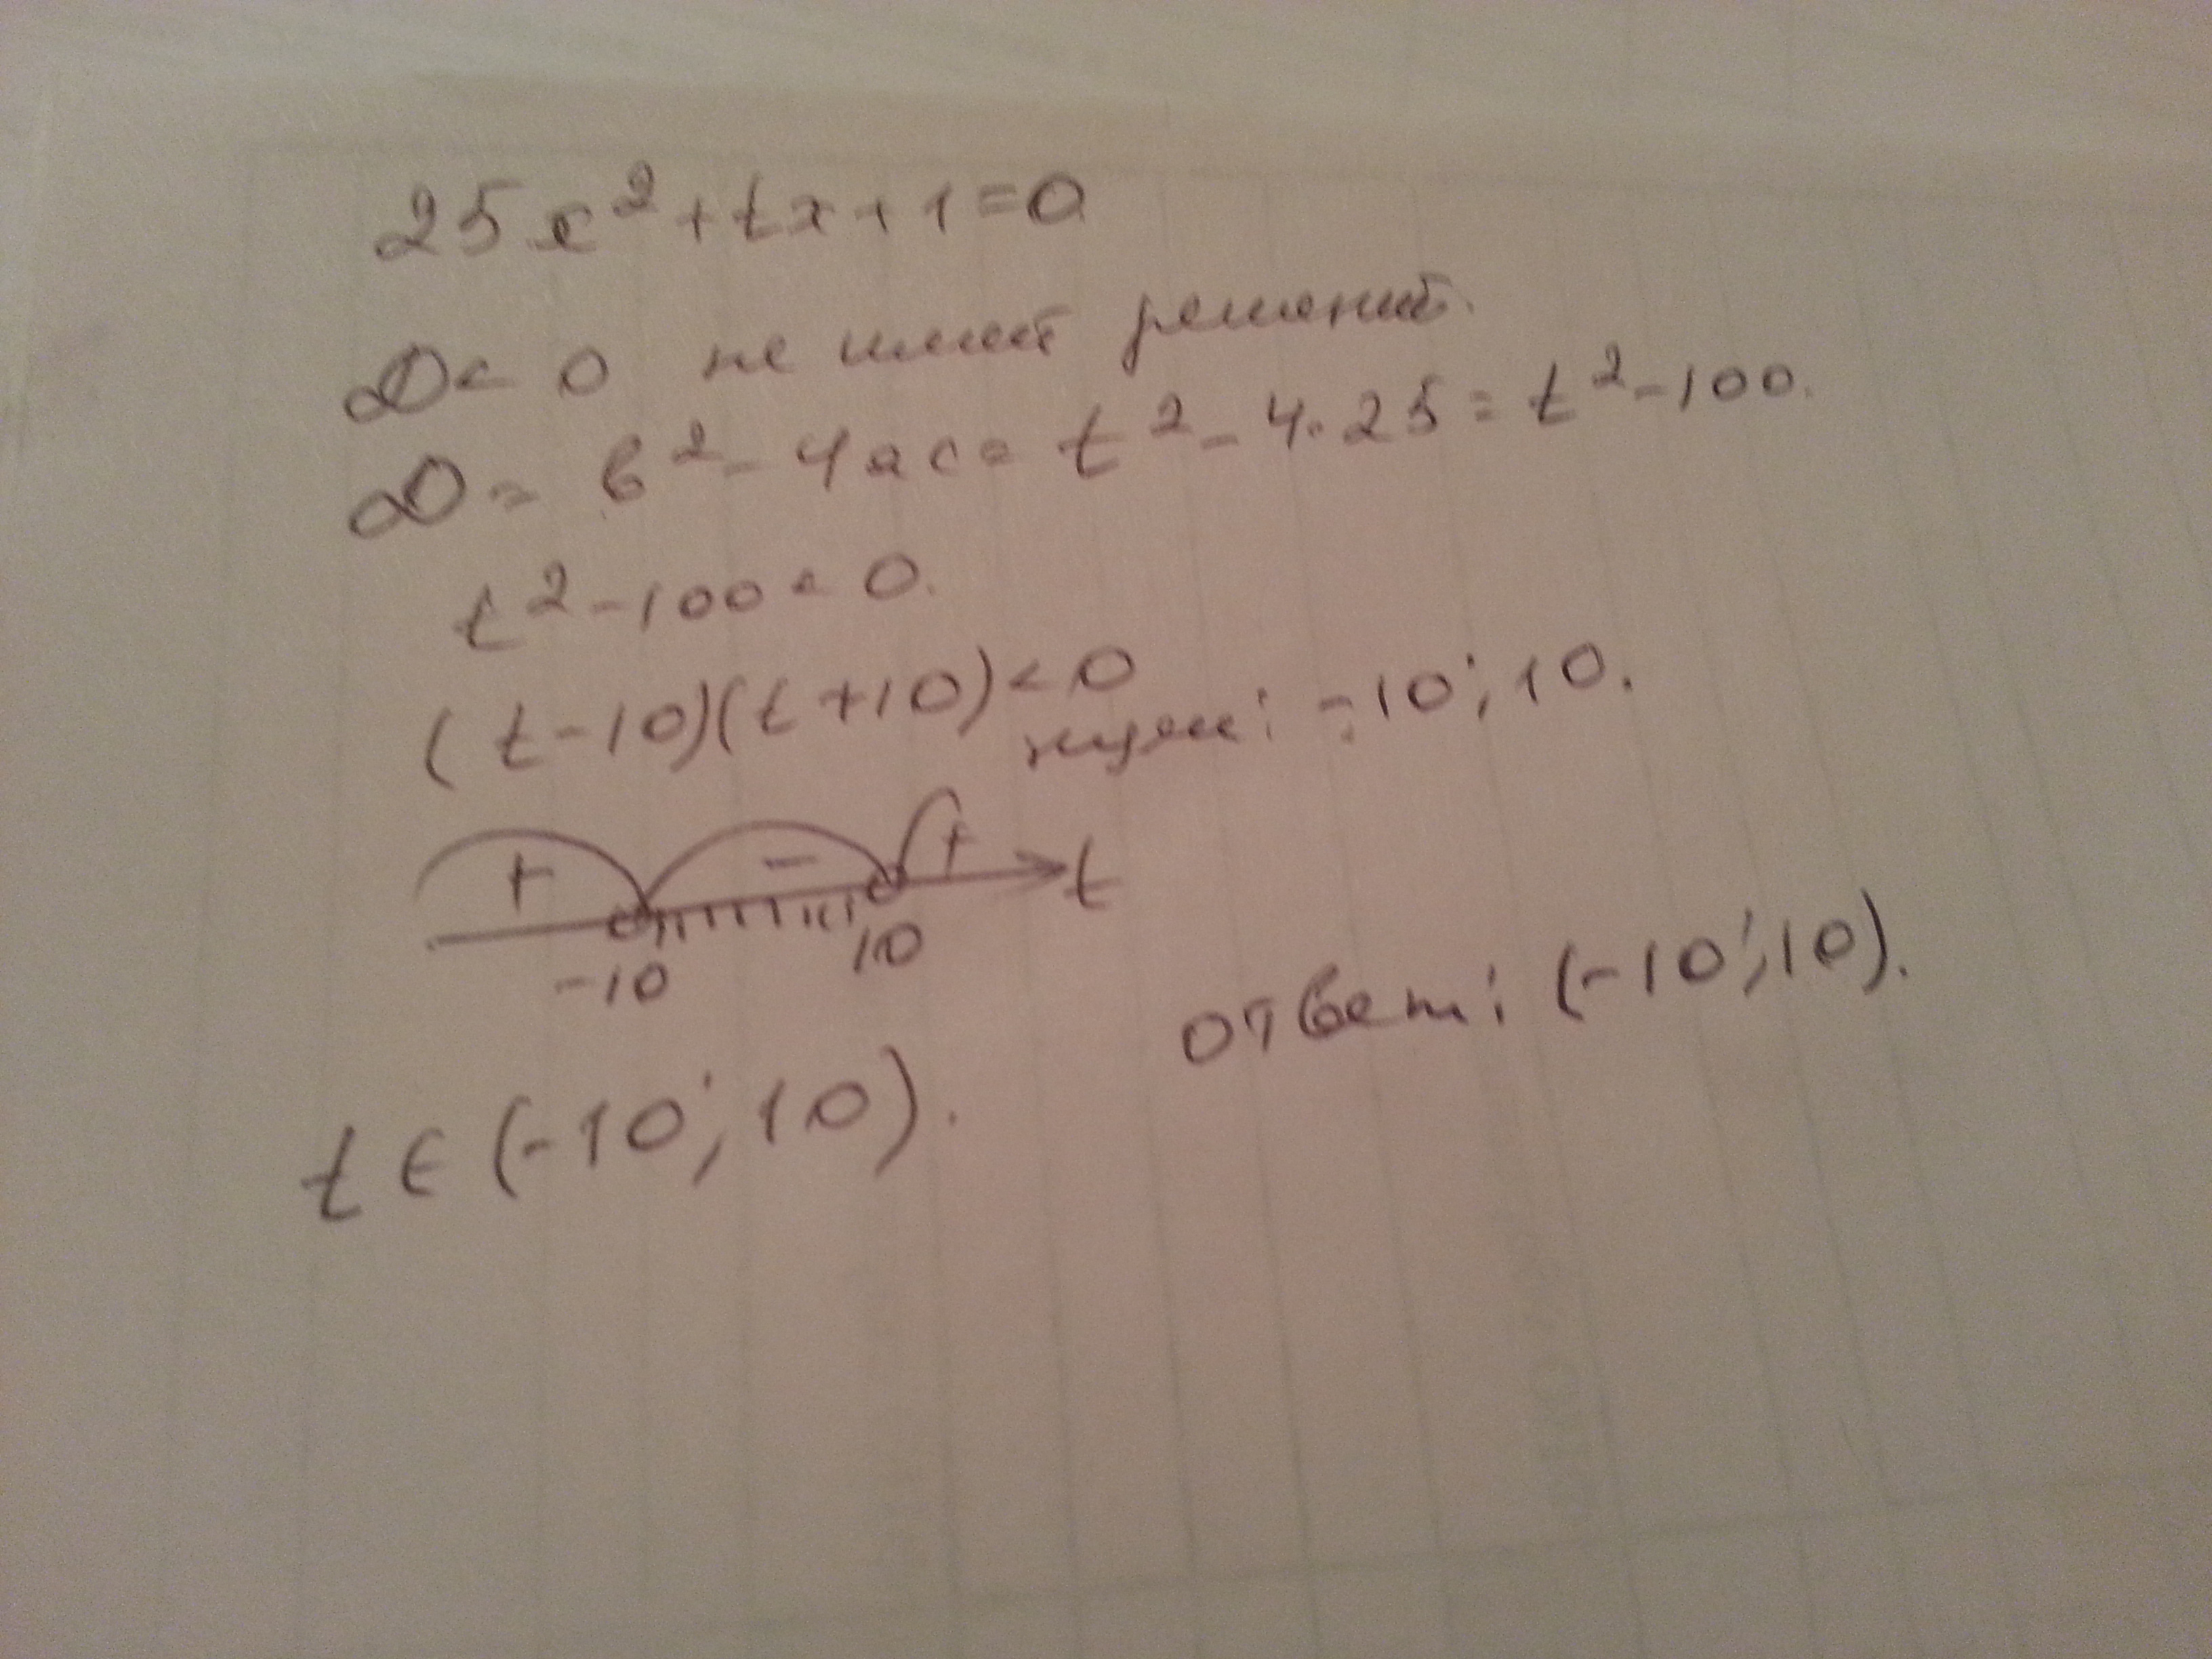 25x²+tx+1=0
D<0 не имеет решений.
D = в²-4ас= t²-4·25= t²-100.
t²-100<0.
(t-10)(t+10)<0
нули: -10; 10.
+ - + t
-10 10
t∈(-10; 10).
ответ: (-10; 10).